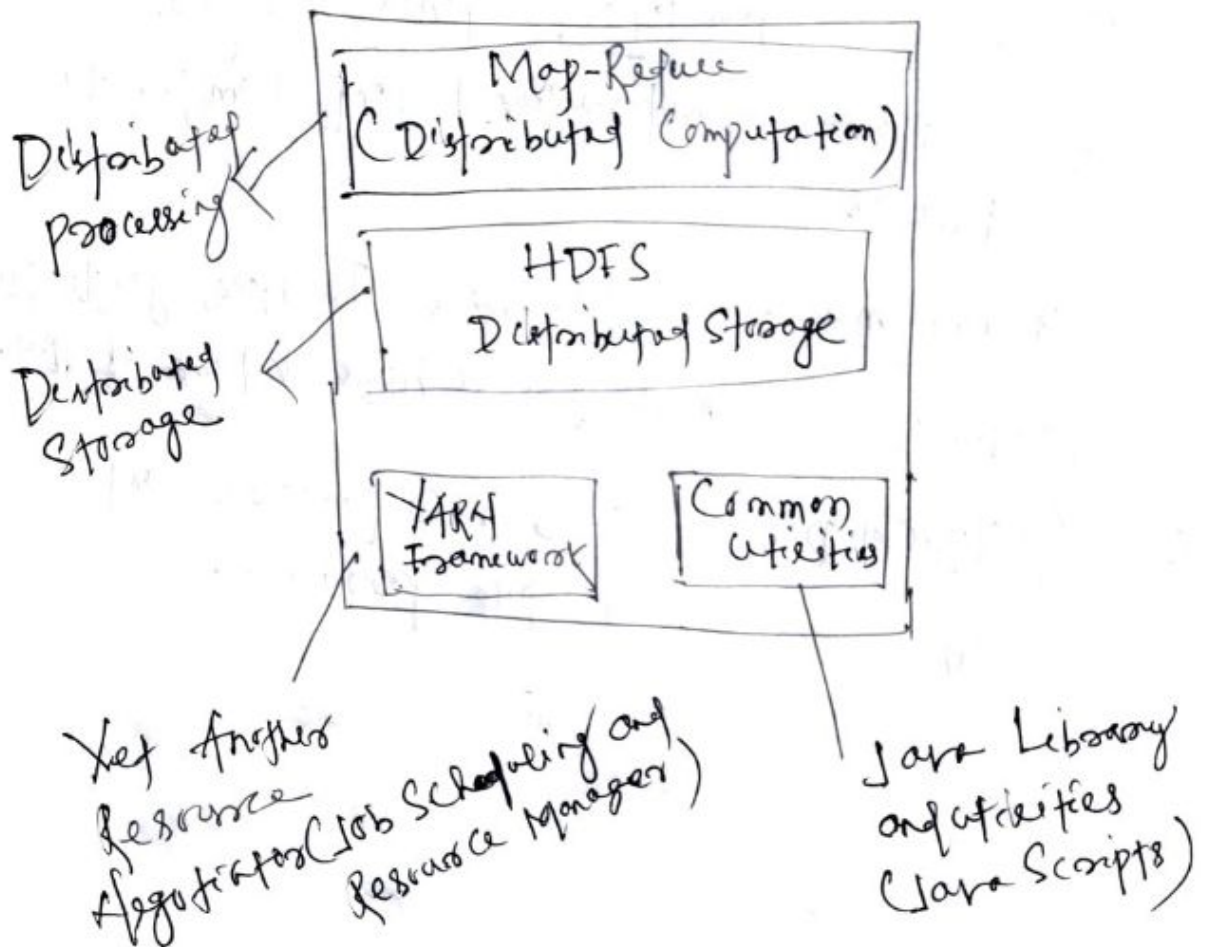 Map-Reduce
(Distributed Computation)
Distributed
Processing
HDFS
Distributed Storage
Distributed
Storage
YARN
Framework
Common
Utilities
Yet Another
Resource
Negotiator (Job Scheduling and
Resource Manager)
Java Library
and utilities
(Java Scripts)